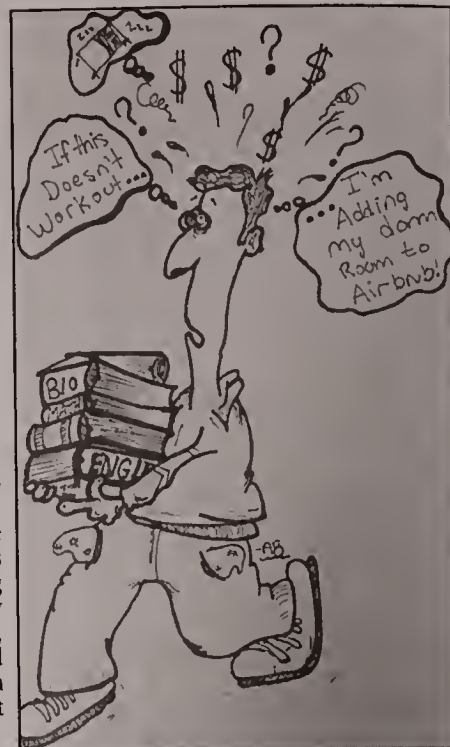 zzz
If this
Doesn't
Workout...
? $ $ ? $ $ ?
...I'm
Adding
my dorm
Room to
Airbnb!
BIO
ENGL
-AB